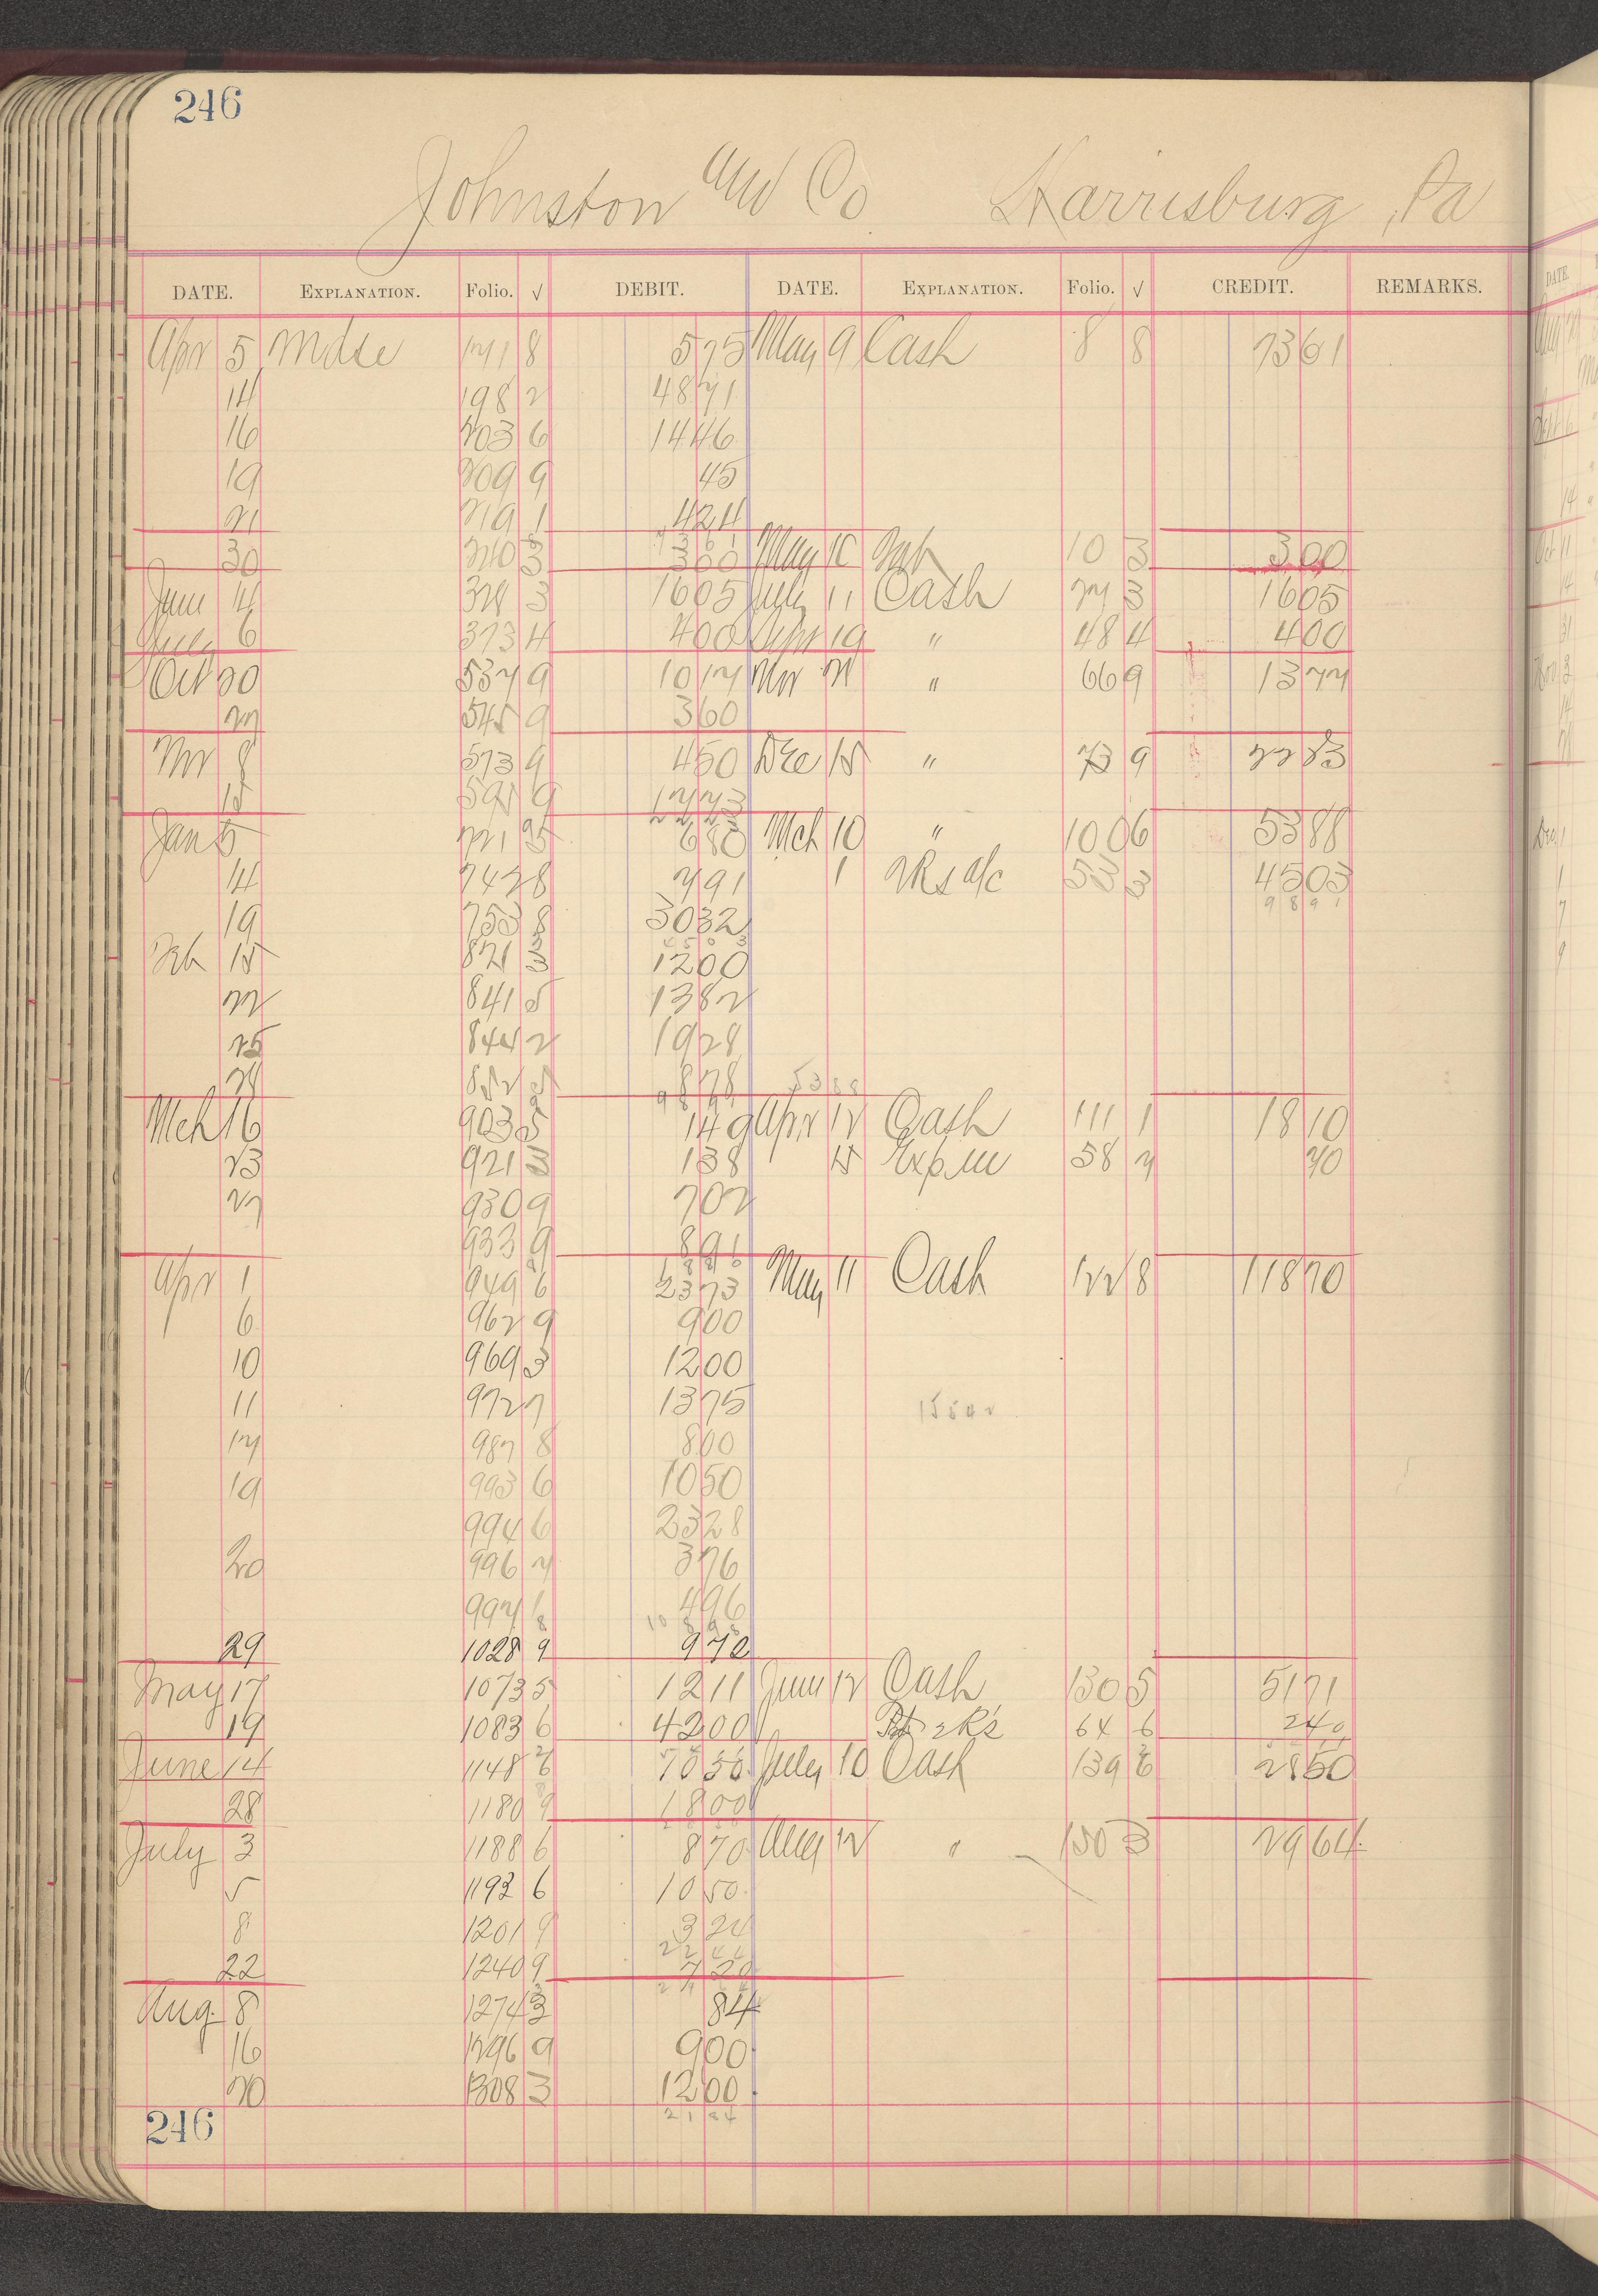 246
Johnston and Co Harrisburg, Pa
DATE. EXPLANATION. Folio. √ DEBIT. DATE. EXPLANATION. Folio. √ CREDIT. REMARKS.
Apr 5 Mdse 171 8 575 May 9 Cash 8 8 7361
14 198 2 4871
16 203 6 1446
19 209 9 45
21 219 1 424
7361
30 240 3 300 May 10 10 3 300
June 4 321 3 1605 July 11 Cash 27 3 1605
July 6 373 4 400 Apr 19 " 48 4 400
Oct 20 537 9 1017 Nov 21 " 66 9 1377
22 545 9 360
Nov 8 573 9 450 Dec 15 " 73 9 2223
15 595 9 1773
2223
Jan 5 721 5 680 Mch 10 " 100 6 5388
14 742 8 791 1 2Rs a/c 53 3 4503
19 753 8 3032 9891
4503
Feb 15 821 3 1200
22 841 5 1382
25 844 2 1928
28 852 878 5388
Mch 16 903 5 149 Apr 12 Cash 111 1 1810
23 921 3 138 15 Exp 58 7 70
27 930 9 702
933 9 891
Apr 1 949 6 2373 May 11 Cash 122 8 11870
6 962 9 900
10 969 3 1200
11 972 7 1375
15542
17 987 8 800
19 993 6 1050
994 6 2328
20 996 7 376
997 1 496
10898
29 1028 9 972
May 17 1073 5 1211 June 12 Cash 130 5 5171
19 1083 6 4200 64 6 240
June 14 1148 6 1050 July 10 Cash 139 6 2850
28 1180 9 1800
July 3 1188 6 870 Aug 12 " 150 3 2964
5 1192 6 1050
8 1201 9 324
2244
22 1240 9 720
Aug. 8 1274 3 84
16 1296 9 900
20 1308 3 1200
2184
246